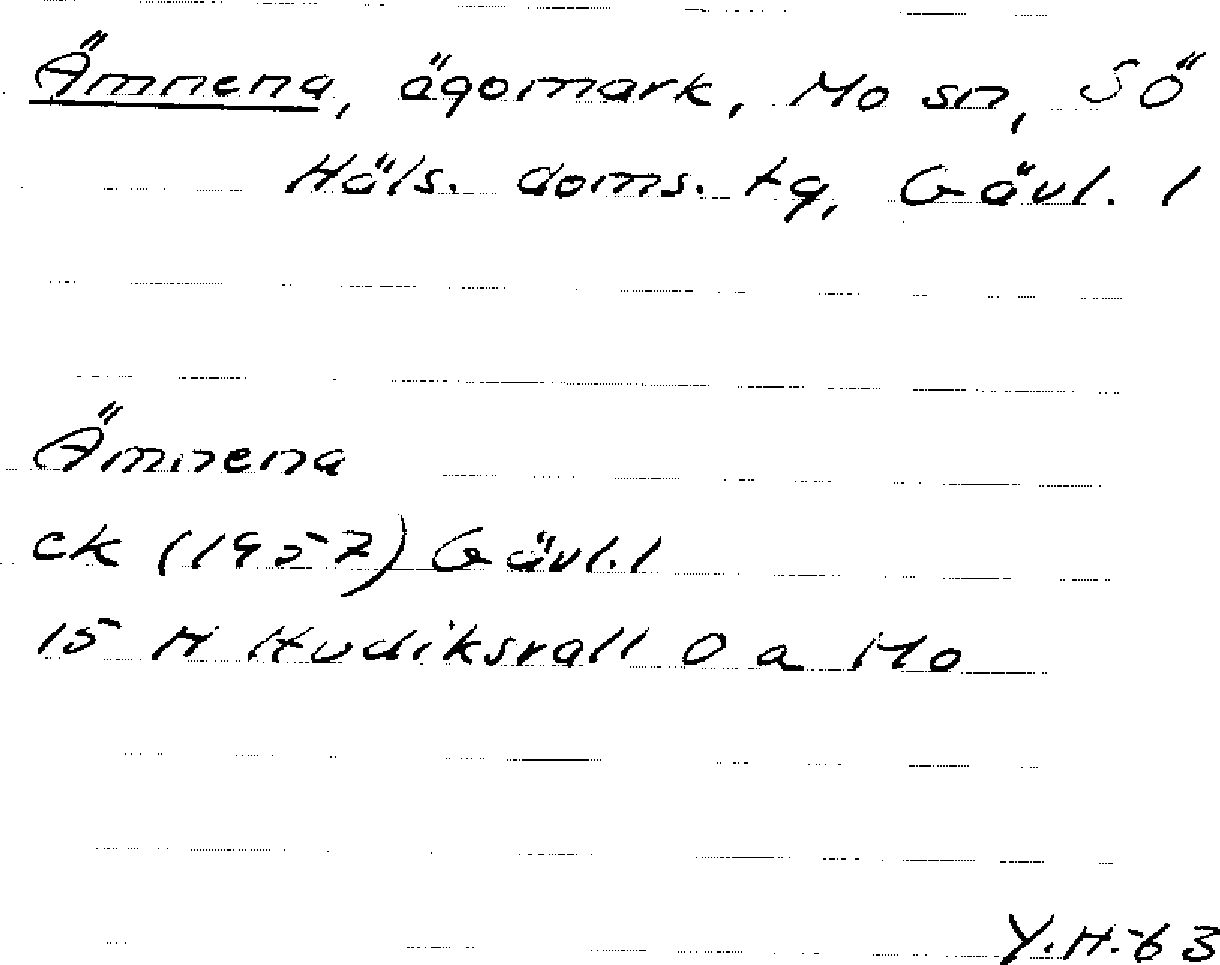 Ämnena, ägomark, Mo sn, Sö
Häls. doms. tg, Gävl. l
Ämnena
ek (1957) Gävl. l
15 H Hudiksvall O a Mo
Y.H.-63